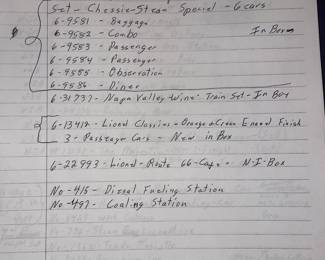 Set - Chessie Steam Special - 6 cars
6-9581 - Baggage
6-9582 - Combo In Boxes
6-9583 - Passenger
6-9584 - Passenger
6-9585 - Observation
6-9586 - Diner
6-31737 - Napa Valley Wine Train Set - In Box
6-13412 - Lionel Classics - Orange & Cream Enamel Finish
3 - Passenger Cars - New in Box
6-22993 - Lionel - Route 66 - N-I-Box
No-415 - Diesel Fueling Station
No-497 - Coaling Station